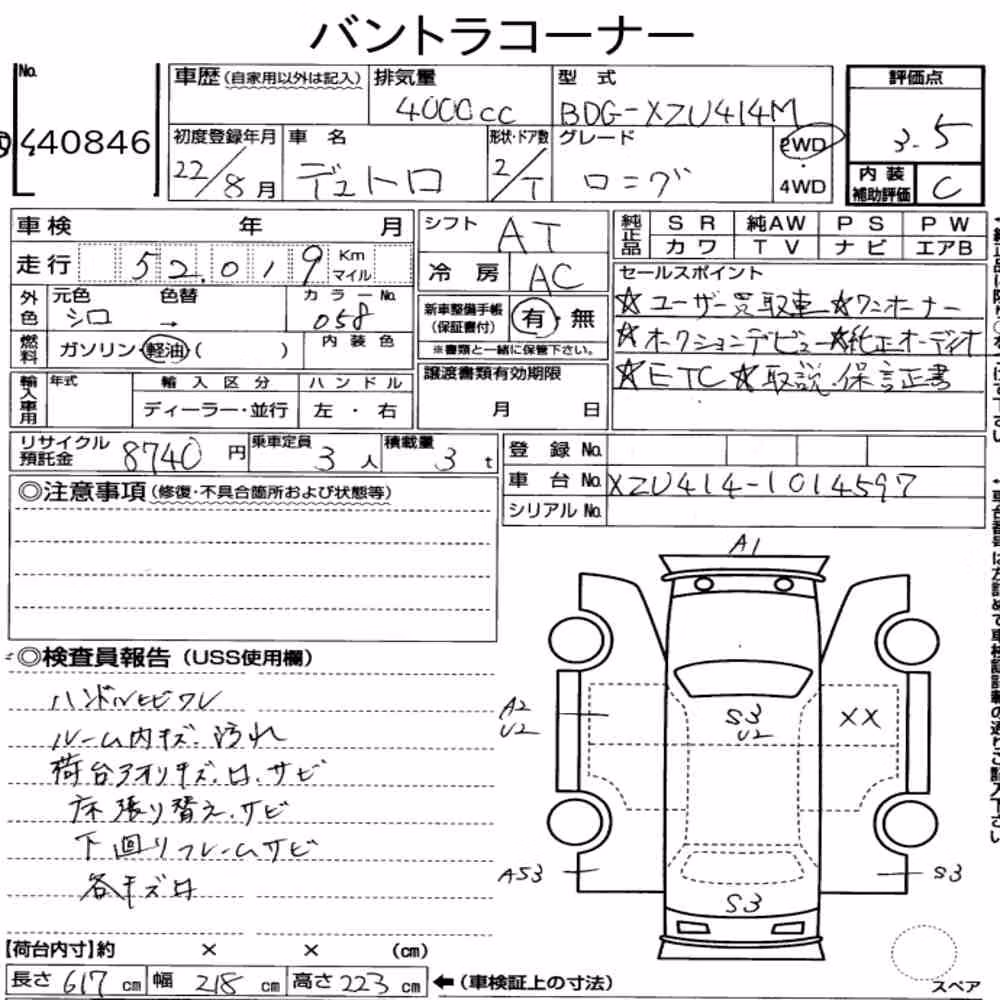 バントラコーナー
No.
440846
車歴 (自家用以外は記入)
排気量
4000cc
型式
BDG-XZU414M
評価点
3.5
初度登録年月
22/8月
車名
デュトロ
形状・ドア数
2/T
グレード
ロング
2WD
4WD
内装
補助評価
C
車検 年 月
走行 52.019 Km マイル
シフト
AT
冷房
AC
純正品
SR 純AW PS PW
カワ TV ナビ エアB
外色
元色 色替
シロ →
カラーNo.
058
燃料
ガソリン・軽油・( )
内装色
新車整備手帳
(保証書付)
有・無
※書類と一緒に保管下さい。
セールスポイント
☆ユーザー買取車 ☆ワンオーナー
☆オークションデビュー☆純正オーディオ
☆ETC ☆取説、保証書
輸入車用
年式
輸入区分
ディーラー・並行
ハンドル
左・右
譲渡書類有効期限
月 日
リサイクル
預託金
8740円
乗車定員
3人
積載量
3t
登録No.
車台No. XZU414-1014597
シリアルNo.
◎注意事項 (修復・不具合箇所および状態等)
◎検査員報告 (USS使用欄)
ハンドルヒビワレ
ルーム内キズ、汚れ
荷台アオリキズ、凹、サビ
床張り替え、サビ
下回りフレームサビ
各キズ凹
A1
A2
U2
S3
U2
XX
AS3
S3
S3
スペア
【荷台内寸】約 × × (cm)
長さ 617 cm 幅 218 cm 高さ 223 cm ←(車検証上の寸法)